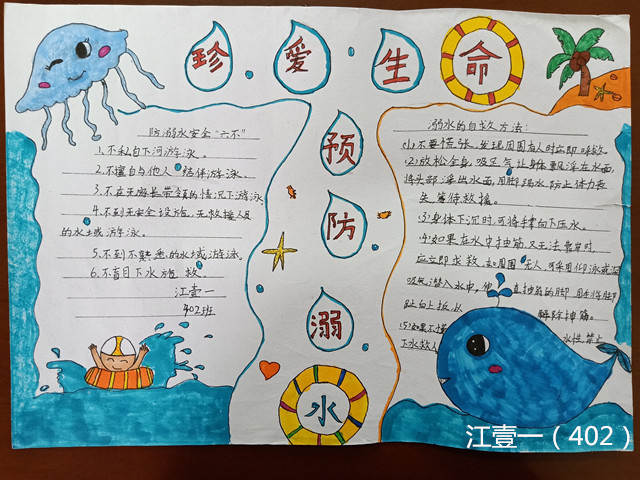 珍爱生命
预防溺水
防溺水安全"六不"
1.不私自下河游泳。
2.不擅自与他人结伴游泳。
3.不在无家长带领的情况下游泳
4.不到无安全设施、无救援人员
的水域游泳。
5.不到不熟悉的水域游泳。
6.不盲目下水施救。
江壹一
402班
溺水的自救方法:
(1)不要慌张,发现周围有人时立即呼救。
(2)放松全身,吸足气让身体飘浮在水面,
将头部浮出水面,用脚踢水,防止体力丧
失,等待救援。
(3)身体下沉时,可将手掌向下压水。
(4)如果在水中抽筋,又无法靠岸时,
应立即求救。如周围无人,可采用仰泳或深
吸气潜入水中,伸直抽筋的脚,用手将脚
趾向上扳,以解除抽筋。
(5)如果不懂水性,禁止
下水救人
江壹一(402)